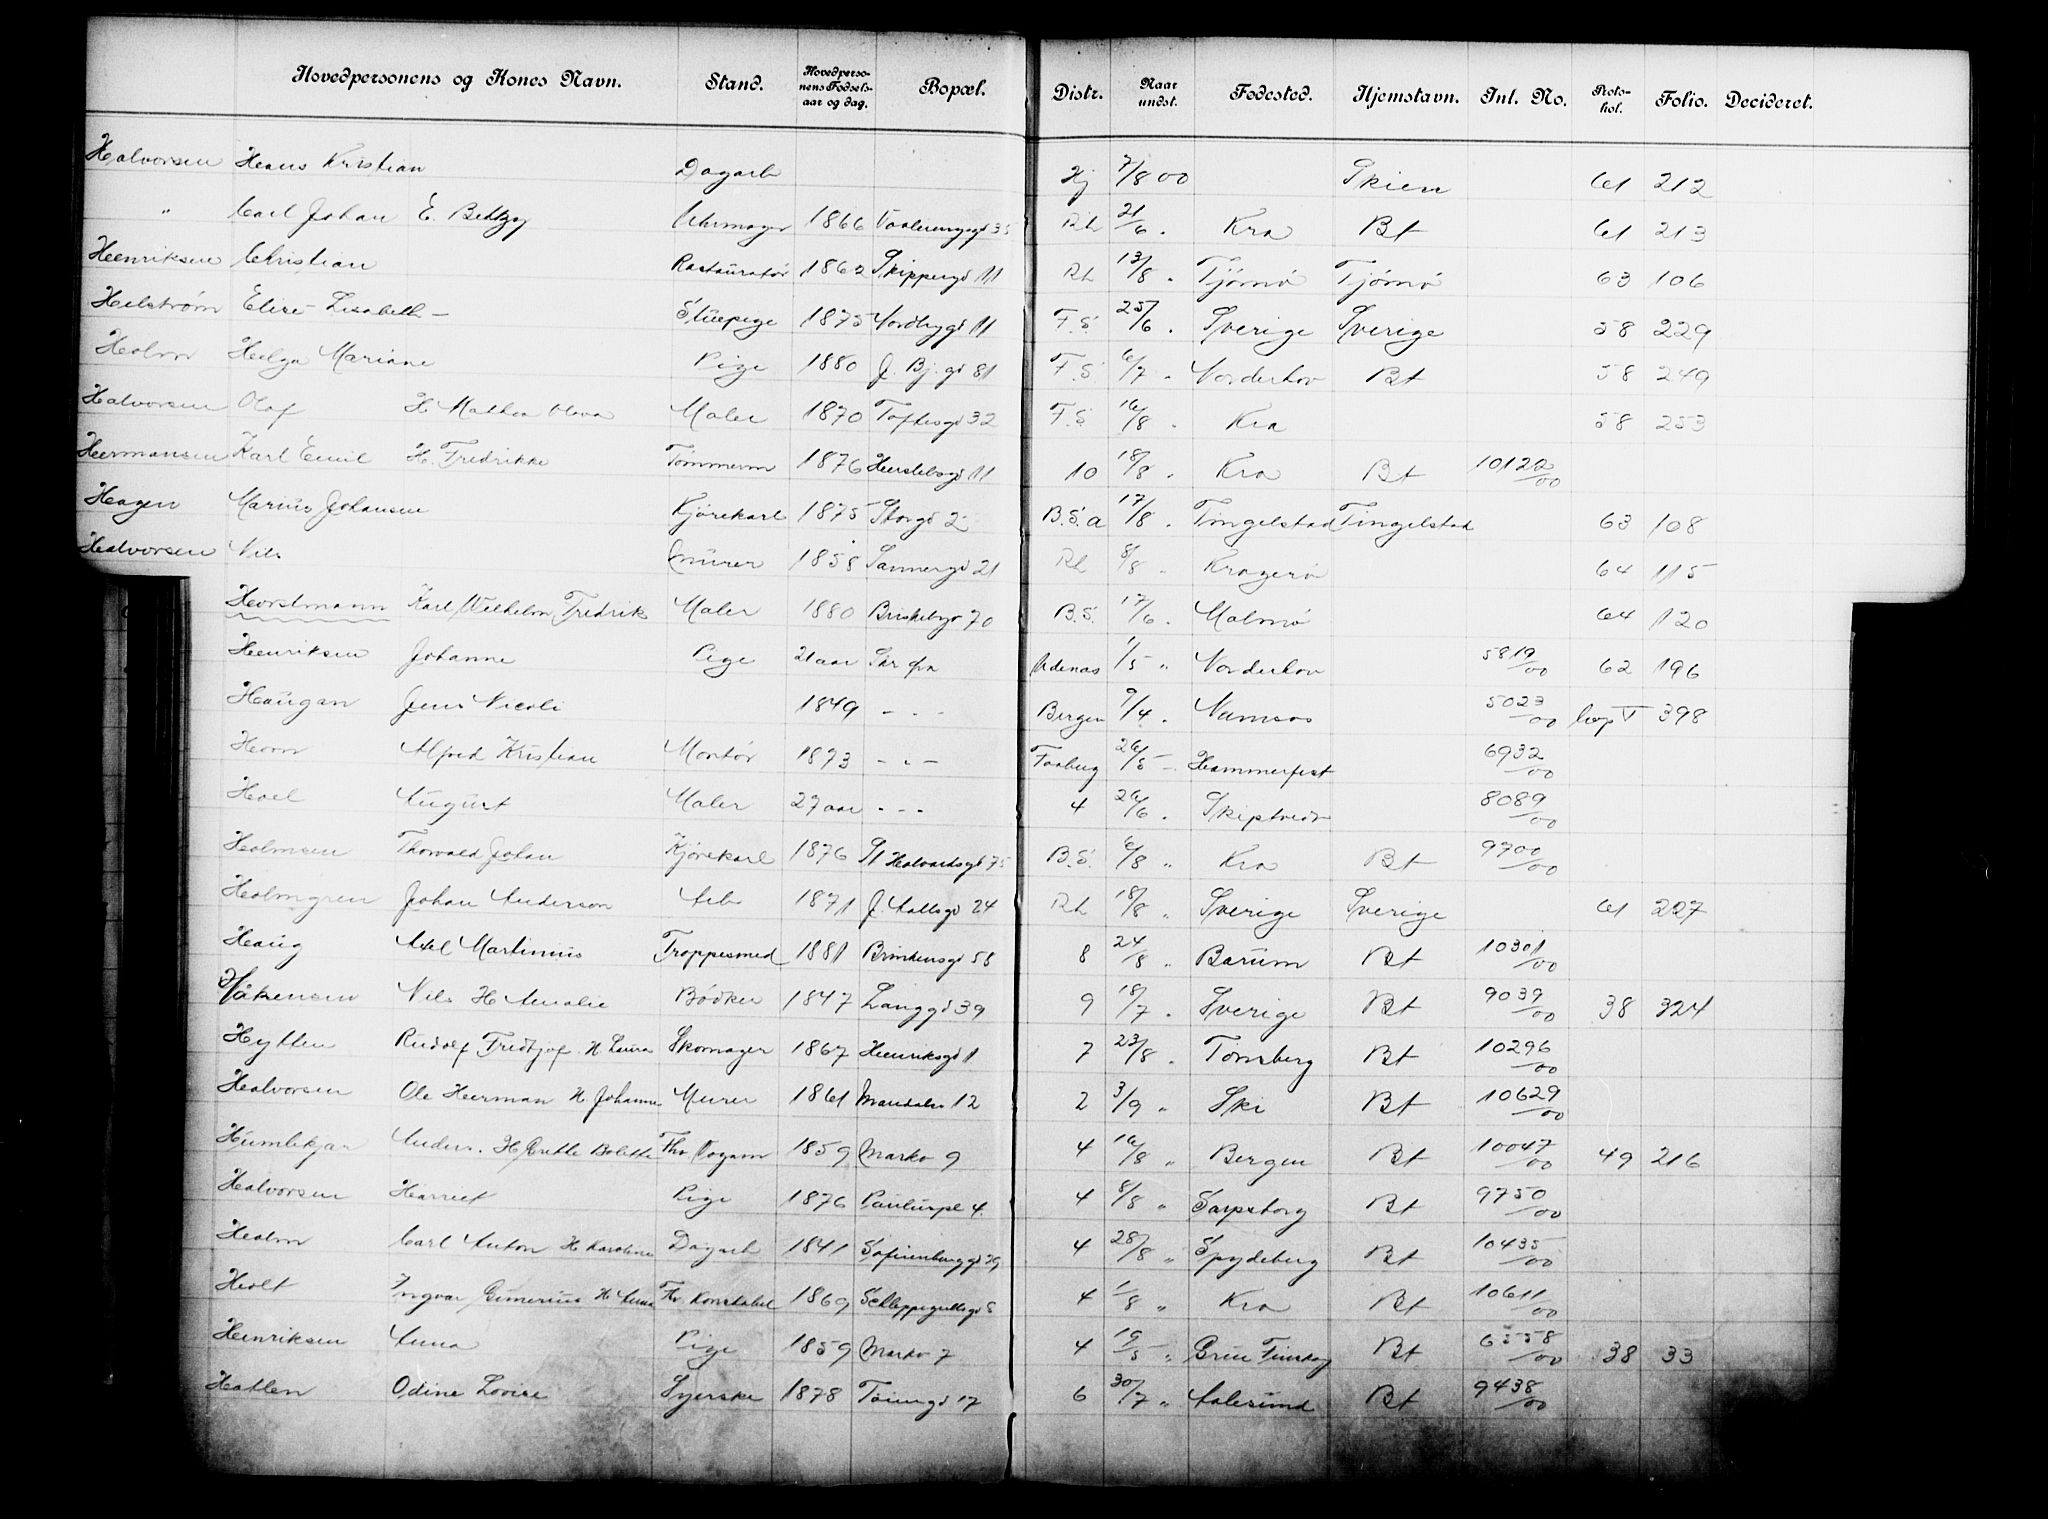 Hovedpersonens og Kones Navn. Stand. Hovedpersonens Fødselsaar og dag. Bopæl. Distr. Naar undst. Fødested. Hjemstavn. Inl. No. Protokol. Folio. Decideret.
Halvorsen Hans Kristian Dagarb Hj 7/8 00 Skien 61 212
" Carl Johan E. Betzy Uhrmager 1866 Vaalerenggd 35 Rh 21/6 . Kra Bt 61 213
Henriksen Christian Restauratør 1862 Skippergd 11 Rh 13/8 . Tjømø Tjømø 63 106
Helstrøm Elise Lisabeth Stuepige 1875 Nordbygd 11 F.S. 25/6 . Sverige Sverige 58 229
Holm Helga Mariane Pige 1880 J. Bj. gd 81 F.S. 6/7 . Norderhov Bt 58 249
Halvorsen Olaf H. Mathea Olava Maler 1870 Toftesgd 32 F.S. 16/8 . Kra 58 253
Hermansen Karl Emil H. Fredrikke Tømmerm 1876 Herslebsgd 11 10 18/8 . Kra Bt 10122/00
Hagen Marius Johansen Kjørekarl 1875 Storgd 2 B.S. a 17/8 . Tingelstad Tingelstad 63 108
Halvorsen Nils Murer 1858 Sannergd 21 Rh 8/8 " Kragerø 64 115
Horstmann Karl Wilhelm Fredrik Maler 1880 Briskebyv 70 B.S. 17/6 . Malmø 64 120
Henriksen Johanne Pige 21 aar Udenas 1/5 " Norderhov 5819/00 62 196
Haugan Jens Nicoli 1849 - - - Bergen 9/4 . Namsos 5023/00 V 398
Horn Alfred Kristian Montør 1873 - - - Faaberg 26/5 - Hammerfest 6932/00
Hoel August Maler 27 aar - - - 4 26/6 . Skiptvedt 8089/00
Holmsen Thorvald Johan Kjørekarl 1876 St Halvardsgd 75 B.S. 6/8 " Kra Bt 9700/00
Holmgren Johan Anderson Arb 1871 J. Aallsgd 24 Rh 18/8 " Sverige Sverige 61 227
Haug Axel Martinius Troppesmed 1881 Brinkensgd 58 8 24/8 " Bærum Bt 10301/00
Håkensen Nils H Amalie Bødker 1847 Langgd 39 9 18/7 . Sverige Bt 9039/00 38 324
Hytten Rudolf Fredtjof H Laura Skomager 1867 Henriksgd 1 7 23/8 . Tønsberg Bt 10296/00
Halvorsen Ole Herman H Johanne Murer 1861 Maridalsv 12 2 3/9 " Ski Bt 10629/00
Humlekjær Anders. H Grethe Bolette Fhv Vogam 1859 Markv 9 4 16/8 " Bergen Bt 10047/00 49 216
Halvorsen Harriet Pige 1876 Pauluspl 4. 4 8/8 " Sarpsborg Bt 9750/00
Holm Carl Anton H Karoline Dagarb 1841 Sofienberggd 29 4 28/8 " Spydeberg Bt 10435/00
Holt Ingvar Gunerius H Anna Fhv Konstabel 1869 Schleppegrellsgd 5 4 1/8 " Kra Bt 10611/00
Henriksen Anna Pige 1859 Markv 7 4 19/5 " Grue Finskog Bt 6558/00 38 33
Hatlen Odine Lovise Syerske 1878 Tøiengd 17 6 30/7 " Aalesund Bt 9438/00